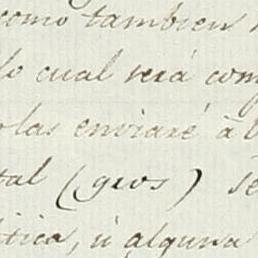 como tambien
lo cual será com
las enviaré â
tal (gros) se
tica, ú alguna